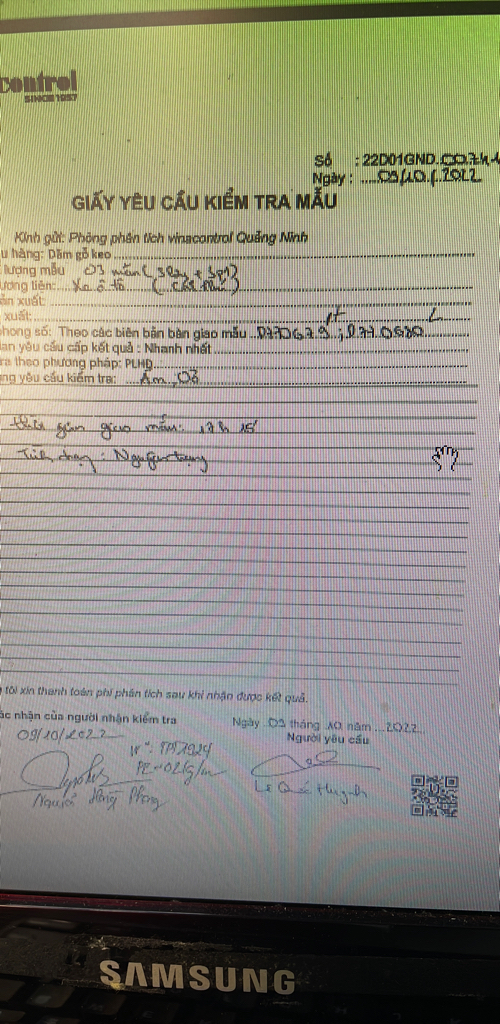 control
SINCE 1957
Số : 22D01GND.
Ngày : 09/10/2022
GIẤY YÊU CẦU KIỂM TRA MẪU
Kính gửi: Phòng phân tích vinacontrol Quảng Ninh
u hàng: Dăm gỗ keo
lượng mẫu 03 mẫu
ương tiện: Xe ô tô
ản xuất:
xuất:
hong số: Theo các biên bản bàn giao mẫu
ian yêu cầu cấp kết quả : Nhanh nhất
ra theo phương pháp: PLHĐ
ng yêu cầu kiểm tra: Ẩm
giao mẫu: 17h 15'
Tình trạng : Nguyên trạng
tôi xin thanh toán phí phân tích sau khi nhận được kết quả.
ác nhận của người nhận kiểm tra
Ngày 09 tháng 10 năm 2022
09/10/2022
Người yêu cầu
Lê Quốc Huỳnh
Hồng Phong
SAMSUNG